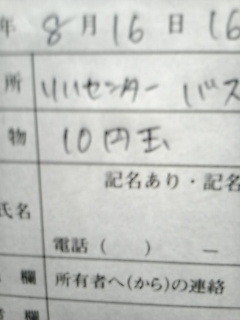 年 8月16日 16
所 リハセンター バス
物 10円玉
記名あり・記名
氏名
電話( ) ー
欄 所有者へ(から)の連絡
欄